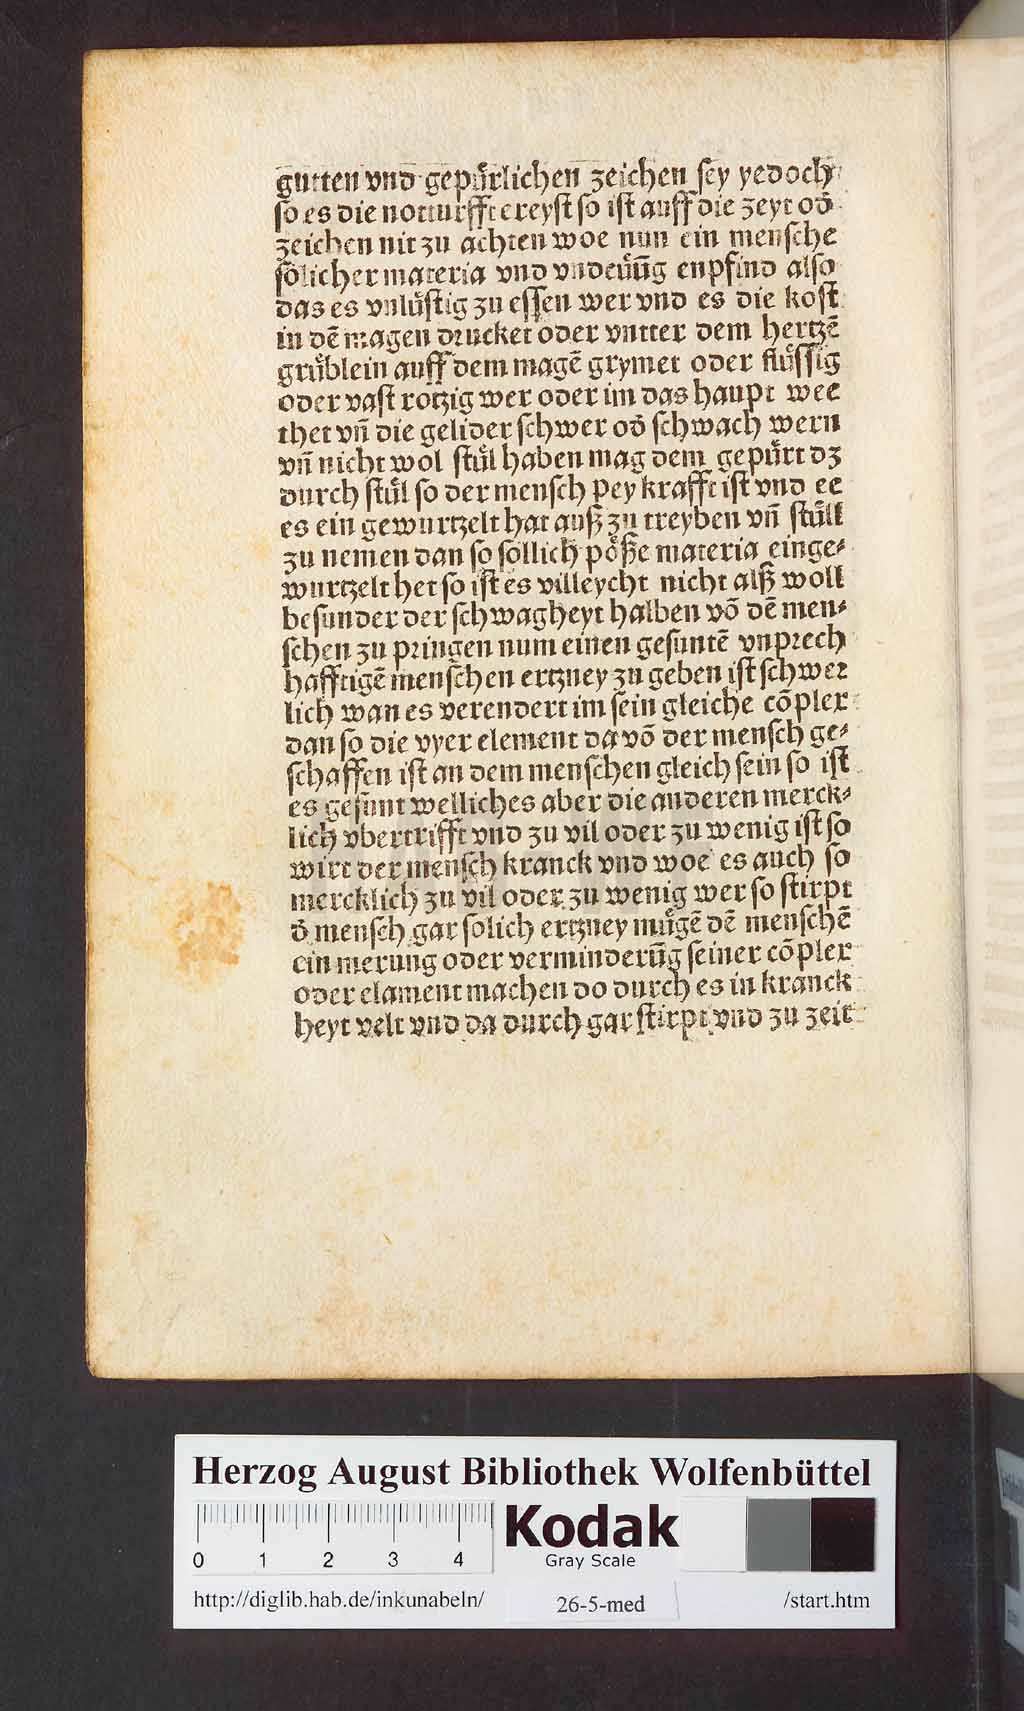 gutten vnd gepuͤrlichen zeichen ſey yedoch
ſo es die notturfft ereyſt ſo iſt auff die zeyt od̄
zeichen nit zu achten woe nun ein menſche
ſoͤlicher materia vnd vndeuͤūg enpfind alſo
das es vnluͤſtig zu eſſen wer vnd es die koſt
in dē magen drucket oder vntter dem hertzē
gruͤblein auff dem magē grymet oder fluͤſſig
oder vaſt rotzig wer oder im das haupt wee
thet vn̄ die gelider ſchwer od̄ ſchwach wern
vn̄ nicht wol ſtuͤl haben mag dem gepuͤrt dz
durch ſtuͤl ſo der menſch pey krafft iſt vnd ee
es ein gewurtzelt hat auß zu treyben vn̄ ſtuͤll
zu nemen dan ſo ſollich poͤße materia einge⸗
wurtzelt het ſo iſt es villeycht nicht alß woll
beſunder der ſchwagheyt halben vō dē men⸗
ſchen zu pringen num einen geſuntē vnprech
hafftigē menſchen ertzney zu geben iſt ſchwer
lich wan es verendert im ſein gleiche cōplex
dan ſo die vyer element da vō der menſch ge⸗
ſchaffen iſt an dem menſchen gleich ſein ſo iſt
es geſunt welliches aber die anderen merck⸗
lich vbertrifft vnd zu vil oder zu wenig iſt ſo
wirt der menſch kranck vnd woe es auch ſo
mercklich zu vil oder zu wenig wer ſo ſtirpt
d̄ menſch gar ſolich ertzney muͤgē dē menſchē
ein merung oder verminderūg ſeiner cōplex
oder elament machen do durch es in kranck
heyt velt vnd da durch gar ſtirpt vnd zu zeit
Herzog August Bibliothek Wolfenbüttel
0 1 2 3 4
Kodak
Gray Scale
http://diglib.hab.de/inkunabeln/ 26-5-med /start.htm